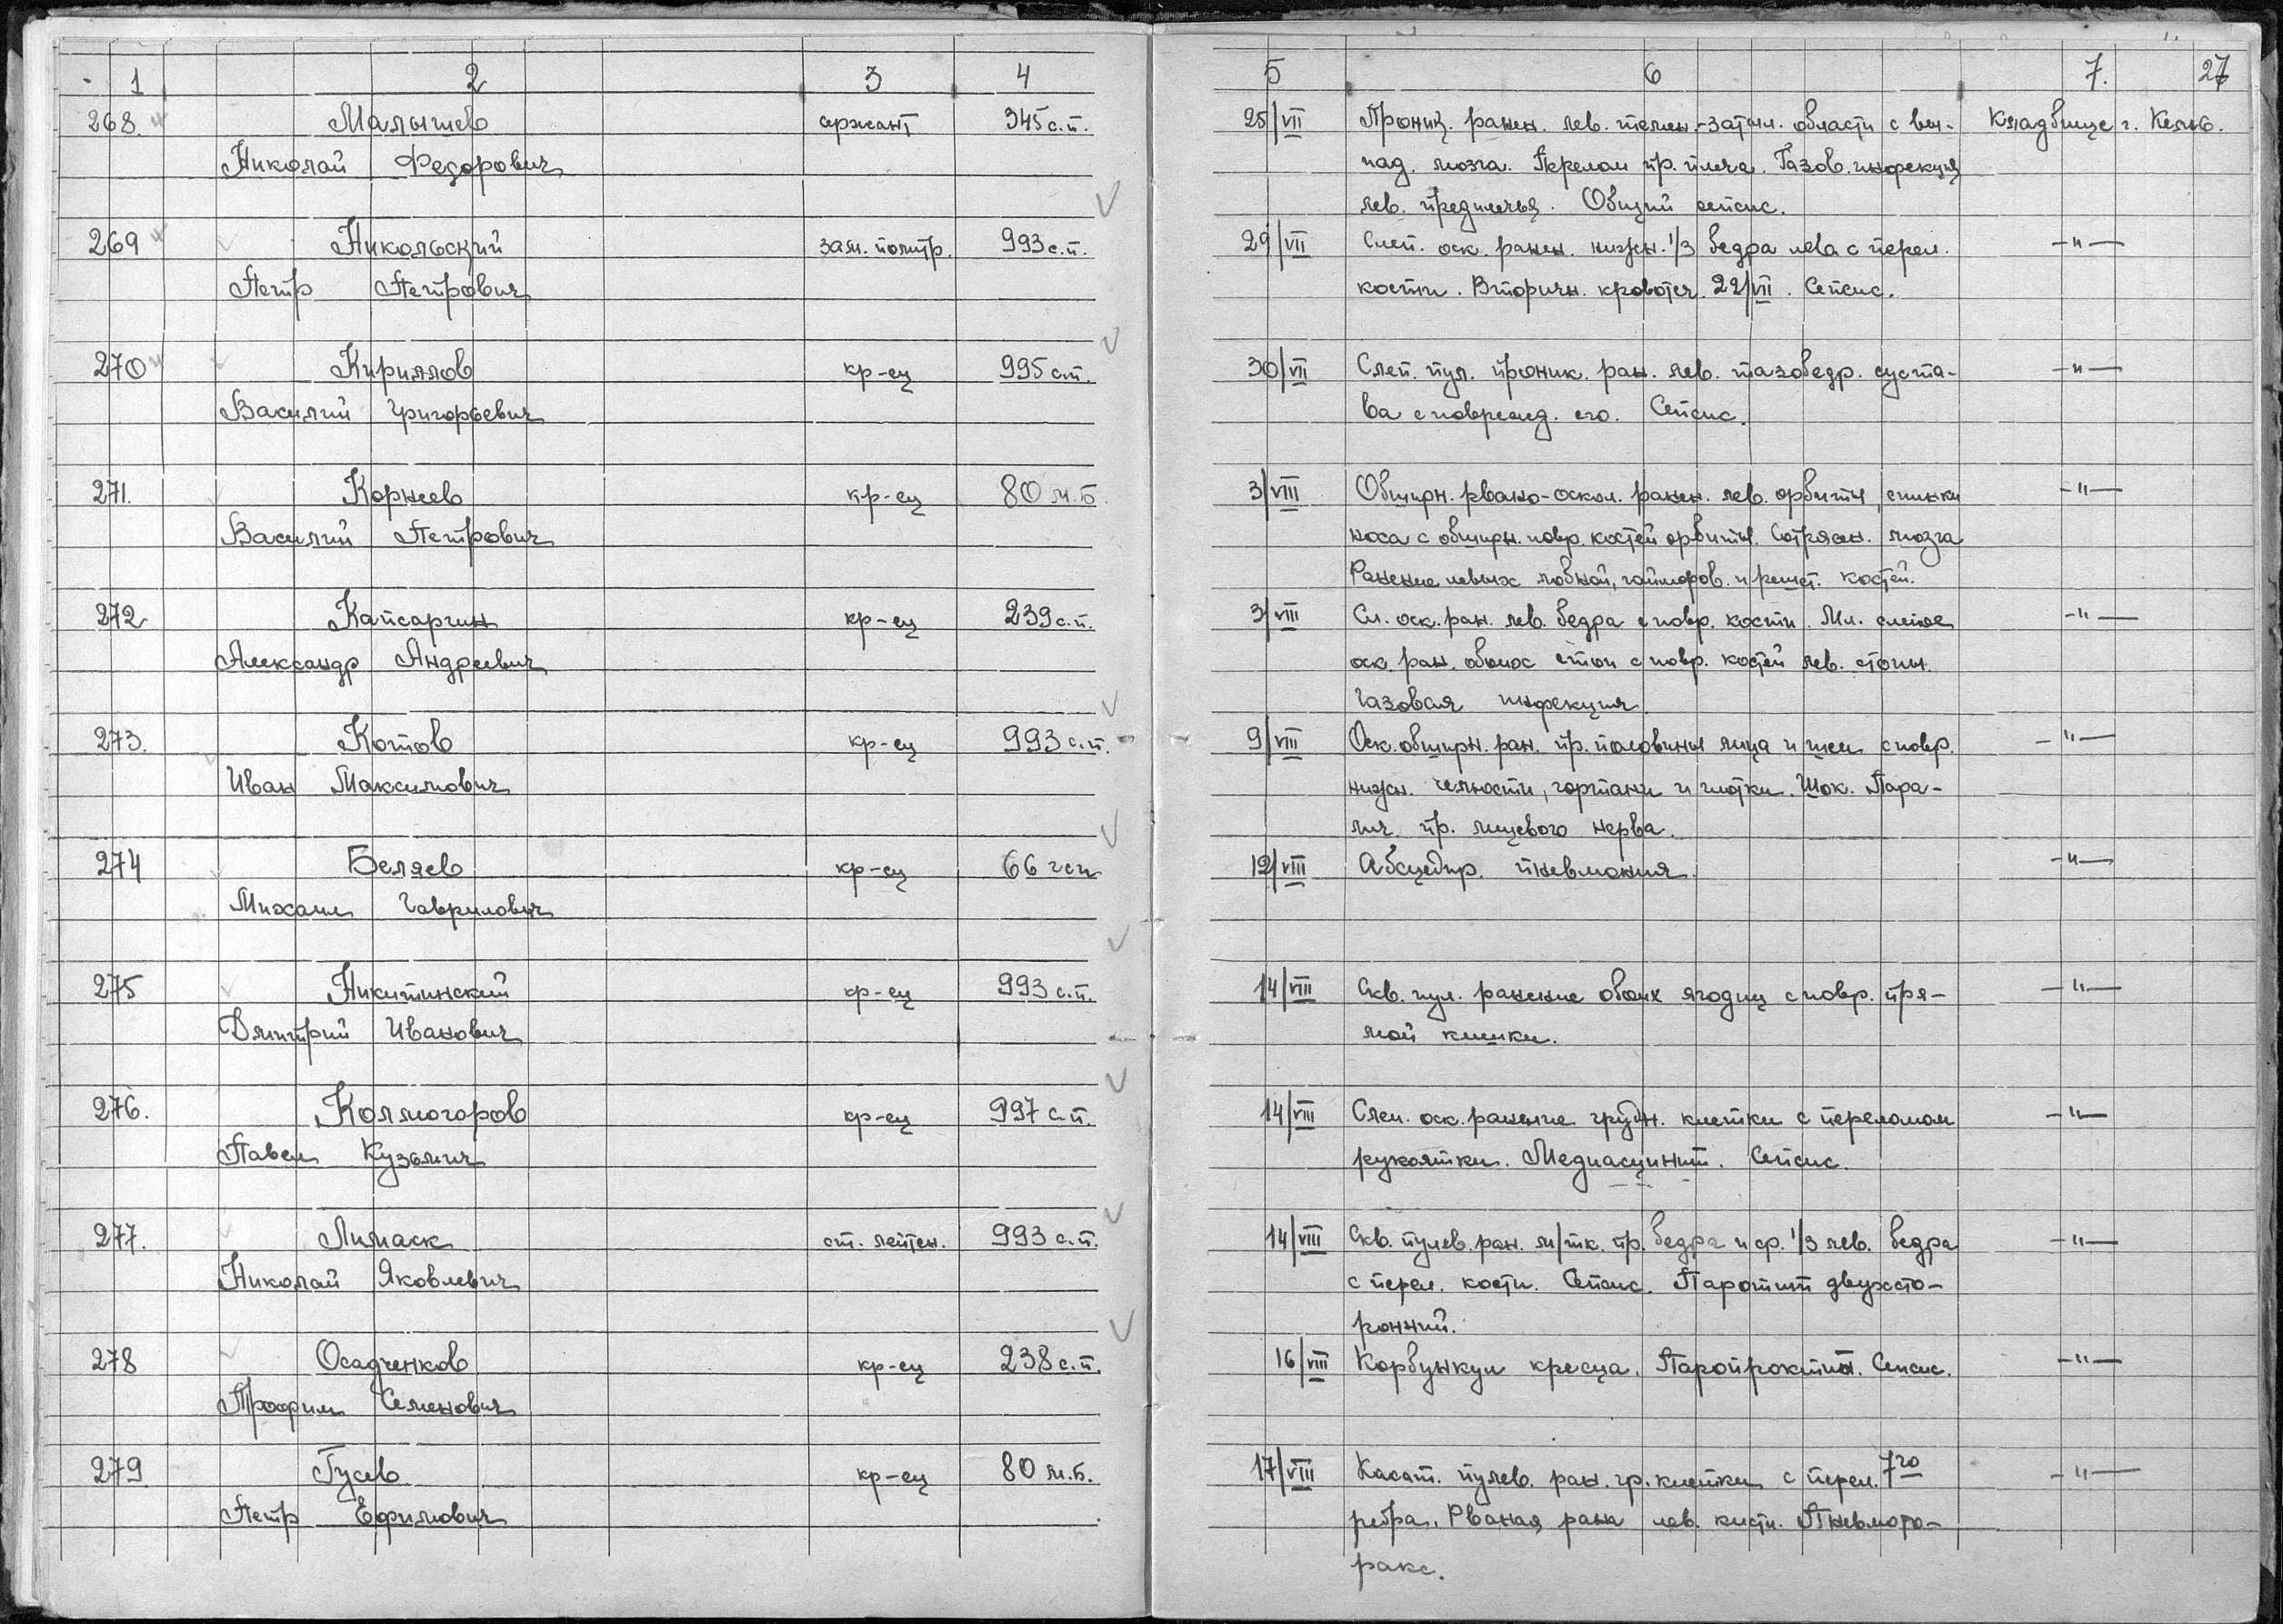 1 2 3 4 5 6 7. 27
268. Малышев сержант 345 с.п. 25/VII Прониц. ранен. лев. темен.-затыл. области с вы- Кладбище г. Кемь.
Николай Федорович пад. мозга. Перелом пр. плеча. Газов. инфекция
лев. предплечья. Общий сепсис.
269 Никольский зам. политр. 993 с.п. 29/VII Слеп. оск. ранен. нижн. 1/3 бедра лева с перел. -"-
Петр Петрович кости. Вторичн. кровотеч. 22/VII. Сепсис.
270 Кириллов кр-ец 995 с.п. 30/VII Слеп. пул. проник. ран. лев. тазобедр. суста- -"-
Василий Григорьевич ва с поврежд. его. Сепсис.
271. Корнеев кр-ец 80 м.б. 3/VIII Обширн. рвано-оскол. ранен. лев. орбиты, спинки -"-
Василий Петрович носа с обширн. повр. костей орбиты. Сотрясен. мозга
Ранение левых лобной, гайморов. и решет. костей.
272 Капсаргин кр-ец 239 с.п. 3/VIII Сл. оск. ран. лев. бедра с повр. кости. Мн. слепое -"-
Александр Андреевич оск. ран. обоих стоп с повр. костей лев. стопы.
Газовая инфекция.
273. Котов кр-ец 993 с.п. 9/VIII Оск. обширн. ран. пр. половины лица и шеи с повр. -"-
Иван Максимович нижн. челюсти, гортани и глотки. Шок. Пара-
лич пр. лицевого нерва.
274 Беляев кр-ец 66 гсп 12/VIII Абсцедир. пневмония. -"-
Михаил Гаврилович
275 Никитинский кр-ец 993 с.п. 14/VIII Скв. пул. ранение обоих ягодиц с повр. пря- -"-
Дмитрий Иванович мой кишки.
276. Колмогоров кр-ец 997 с.п. 14/VIII Слеп. оск. ранение грудн. клетки с переломом -"-
Павел Кузьмич рукоятки. Медиасцинит. Сепсис.
277. Лимаск ст. лейтен. 993 с.п. 14/VIII Скв. пулев. ран. м/тк. пр. бедра и ср. 1/3 лев. бедра -"-
Николай Яковлевич с перел. кости. Сепсис. Паротит двухсто-
ронний.
278 Осадченков кр-ец 238 с.п. 16/VIII Карбункул кресца. Парапроктит. Сепсис. -"-
Трофим Семенович
279 Гусев кр-ец 80 м.б. 17/VIII Касат. пулев. ран. гр. клетки с перел. 7го -"-
Петр Ефимович ребра. Рваная рана лев. кисти. Пневмото-
ракс.